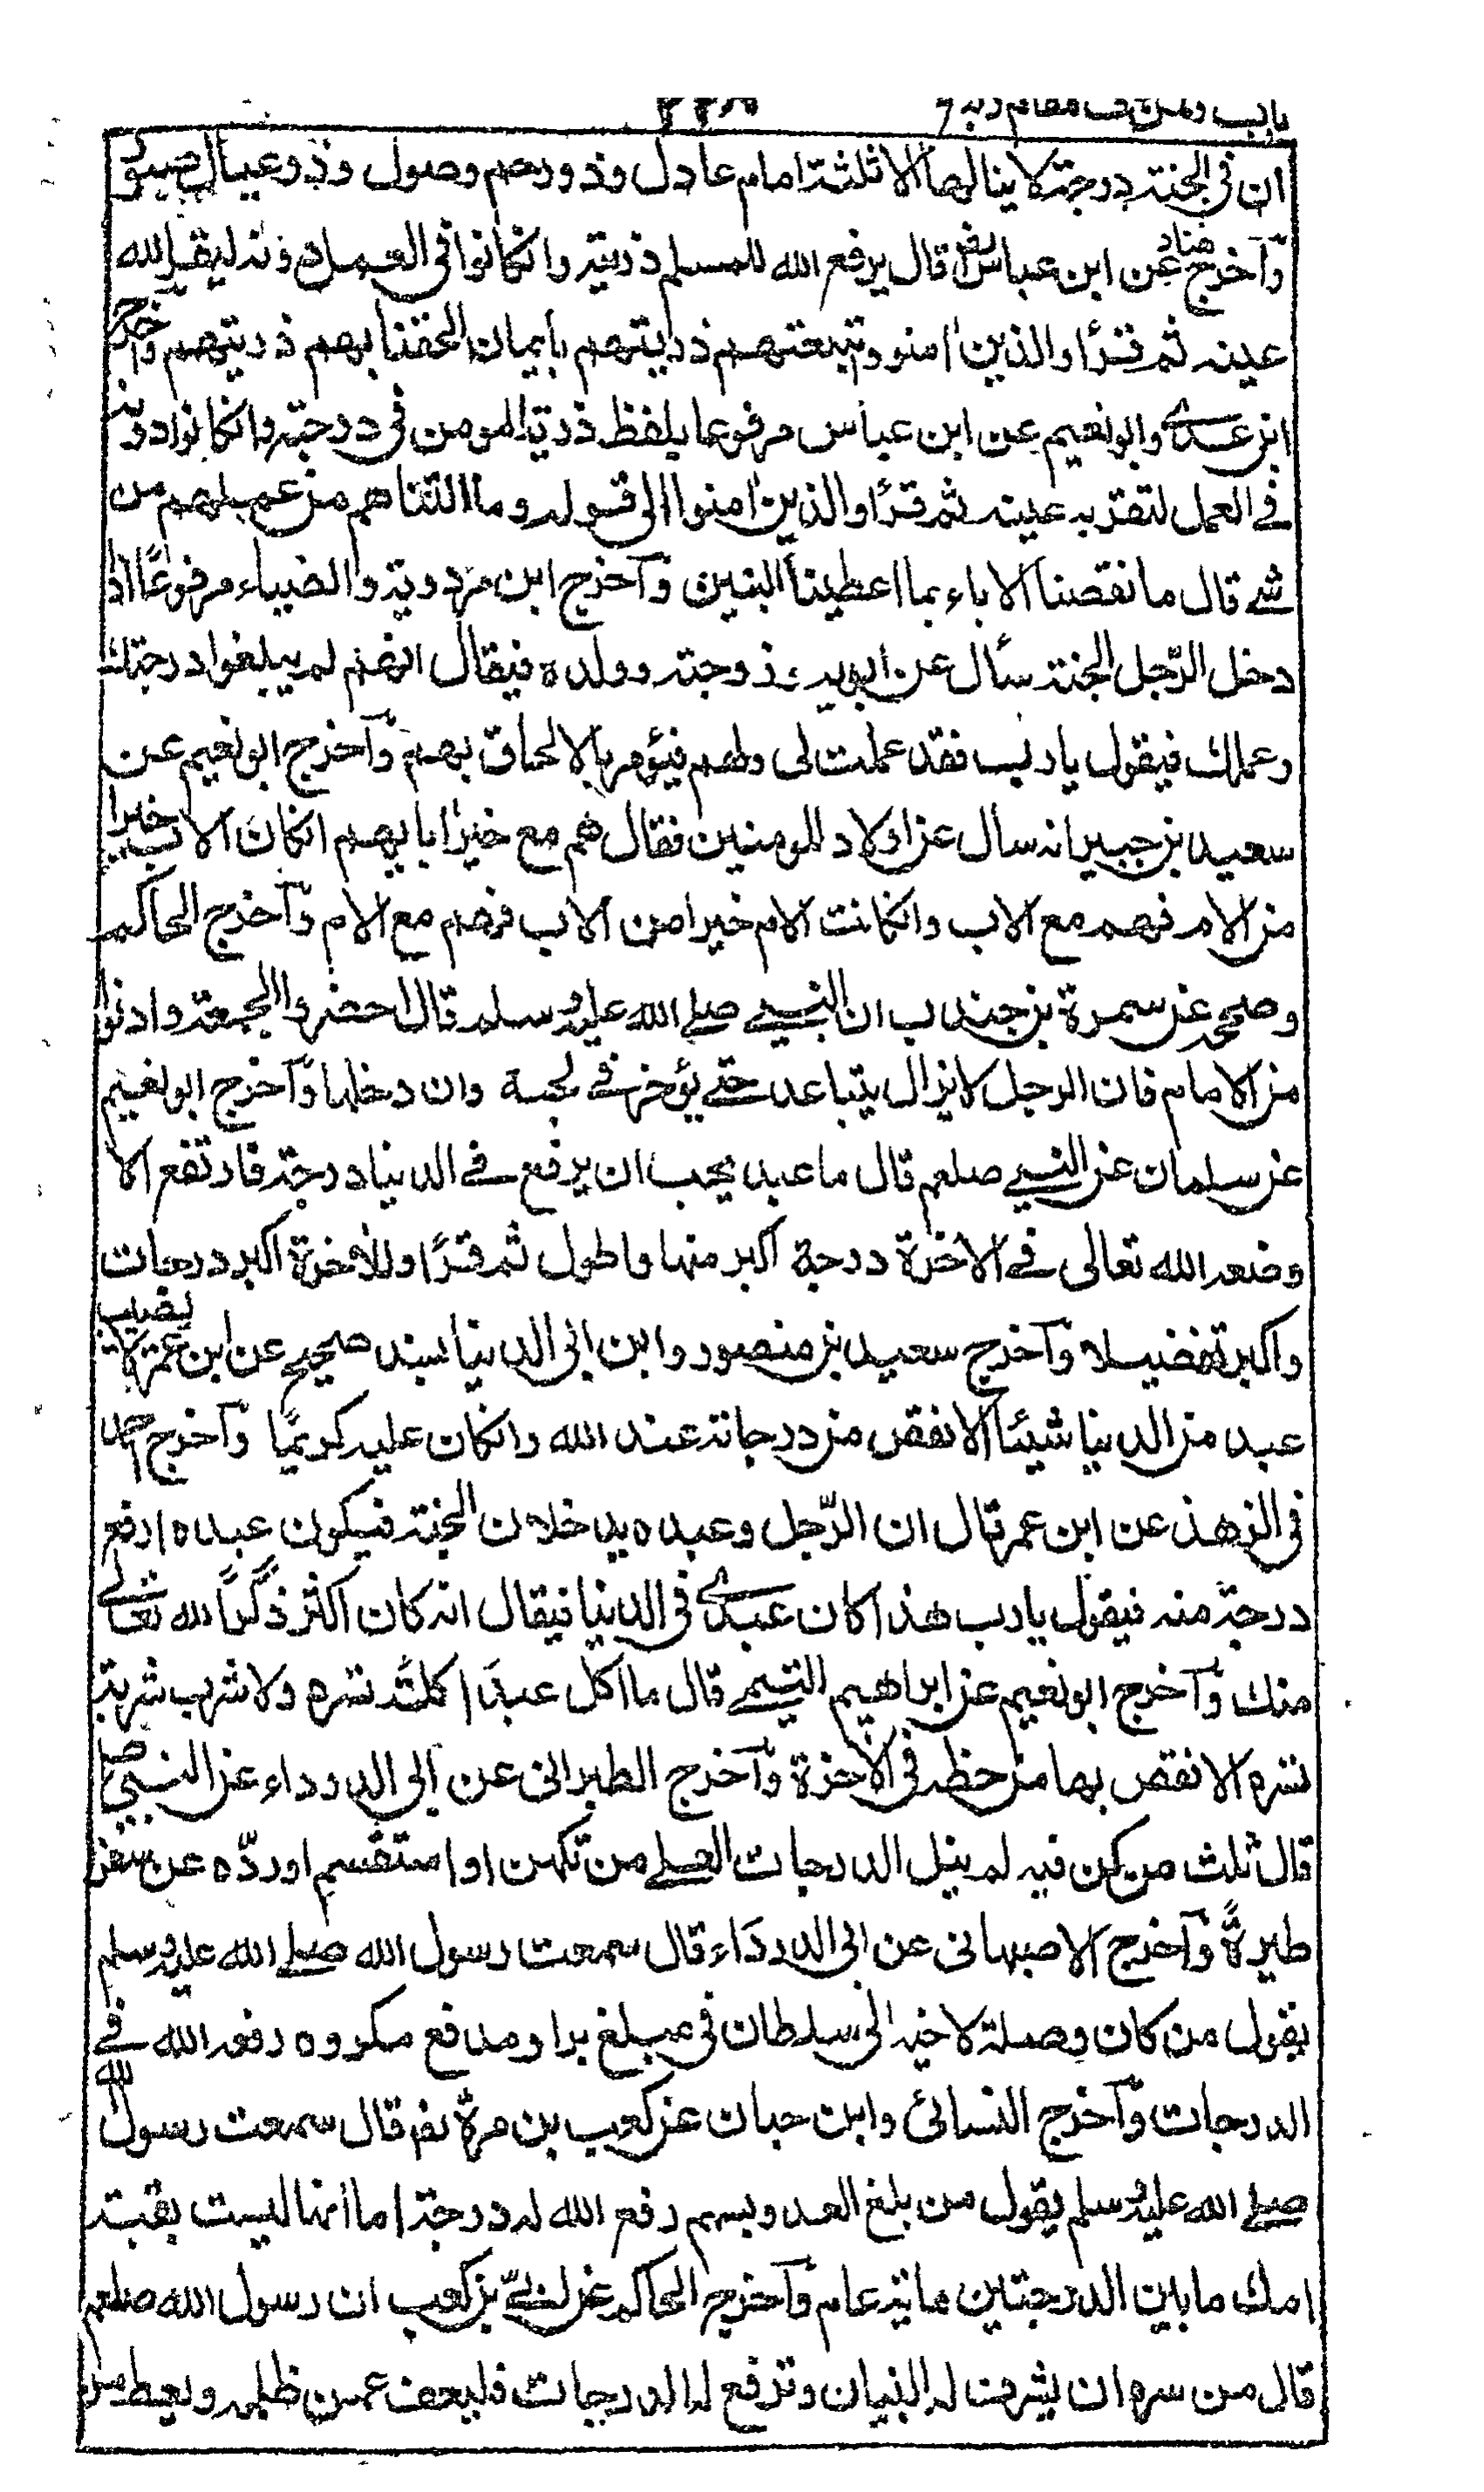 باب ولمن خاف مقام ربه
ان في الجنة درجة لا ينالها الا ثلثة امام عادل وذو رحم وصول وذو عيال صبور
وآخرج هناد عن ابن عباس رض قال يرفع الله للمسلم ذريته وانكانوا في العمل دونه ليقر الله
عينه ثم قرأ والذين امنو وتبعتهم ذريتهم بايمان الحقنا بهم ذريتهم وآخرج
ابن عدي وابو نعيم عن ابن عباس مرفوعا بلفظ ذرية المومن في درجته وانكانوا دونه
في العمل لتقربه عينه ثم قرأ والذين امنوا الى قوله وما التناهم من عملهم من
شي قال ما نقصنا الاباء بما اعطينا البنين وآخرج ابن مردوية والضياء مرفوعًا اذا
دخل الرّجل الجنة سأل عن ابويه وزوجته وولده فيقال انهم لم يبلغوا درجتك
وعملك فيقول يا رب فقد عملت لى ولهم فيؤمر بالالحاق بهم وآخرج ابو نعيم عن
سعيد بن جبير انه سأل عن اولاد المومنين فقال هم مع خير ابايهم انكان الاب خيرا
من الام فهم مع الاب وانكانت الام خيرا من الاب فهم مع الام وآخرج الحاكم
وصححه عن سمرة بن جندب ان النبي صلى الله عليه وسلم قال احضروا الجمعة وادنوا
من الامام فان الرجل لا يزال يتباعد حتى يؤخر في لجنة وان دخلها وآخرج ابو نعيم
عن سلمان عن النبي صلعم قال ما عبد يحب ان يرفع في الدنيا درجة فارتفع الا
وضعه الله تعالى في الاخرة درجة اكبر منها واطول ثم قرأ وللاخرة اكبر درجات
واكبر تفضيلا وآخرج سعيد بن منصور وابن ابى الدنيا بسند صحيح عن ابن عمر لا يصيب
عبد من الدنيا شيئا الا نقص من درجاته عند الله وانكان عليه كريمًا وآخرج احمد
في الزهد عن ابن عمر قال ان الرّجل وعبده يدخلان الجنة فيكون عبده ارفع
درجة منه فيقول يا رب هذا كان عبدي في الدنيا فيقال انه كان اكثر ذكرًا لله تعالى
منك وآخرج ابو نعيم عن ابراهيم التيمي قال ما اكل عبد اكلة تسره ولا شرب شربة
تسره الا نقص بها من حظه في الاخرة وآخرج الطبرانى عن ابى الدرداء عن النبي صلى
قال ثلث من كن فيه لم ينل الدرجات العلى من تكهن او استقسم او ردّه عن سفر
طيرةً وآخرج الاصبهانى عن ابى الدرداء قال سمعت رسول الله صلى الله عليه وسلم
يقول من كان وصلة لاخيه الى سلطان في مبلغ برا ومدفع مكروه رفعه الله في
الدرجات وآخرج النسائى وابن حبان عن كعب بن مرة رض قال سمعت رسول الله
صلى الله عليه وسلم يقول من بلغ العدو بسهم رفع الله له درجة اما انها ليست بعتبة
امك ما بين الدرجتين مائة عام وآخرج الحاكم عن ابي بن كعب ان رسول الله صلعم
قال من سره ان يشرف له البنيان وترفع له الدرجات فليعف عمن ظلمه ويعط من